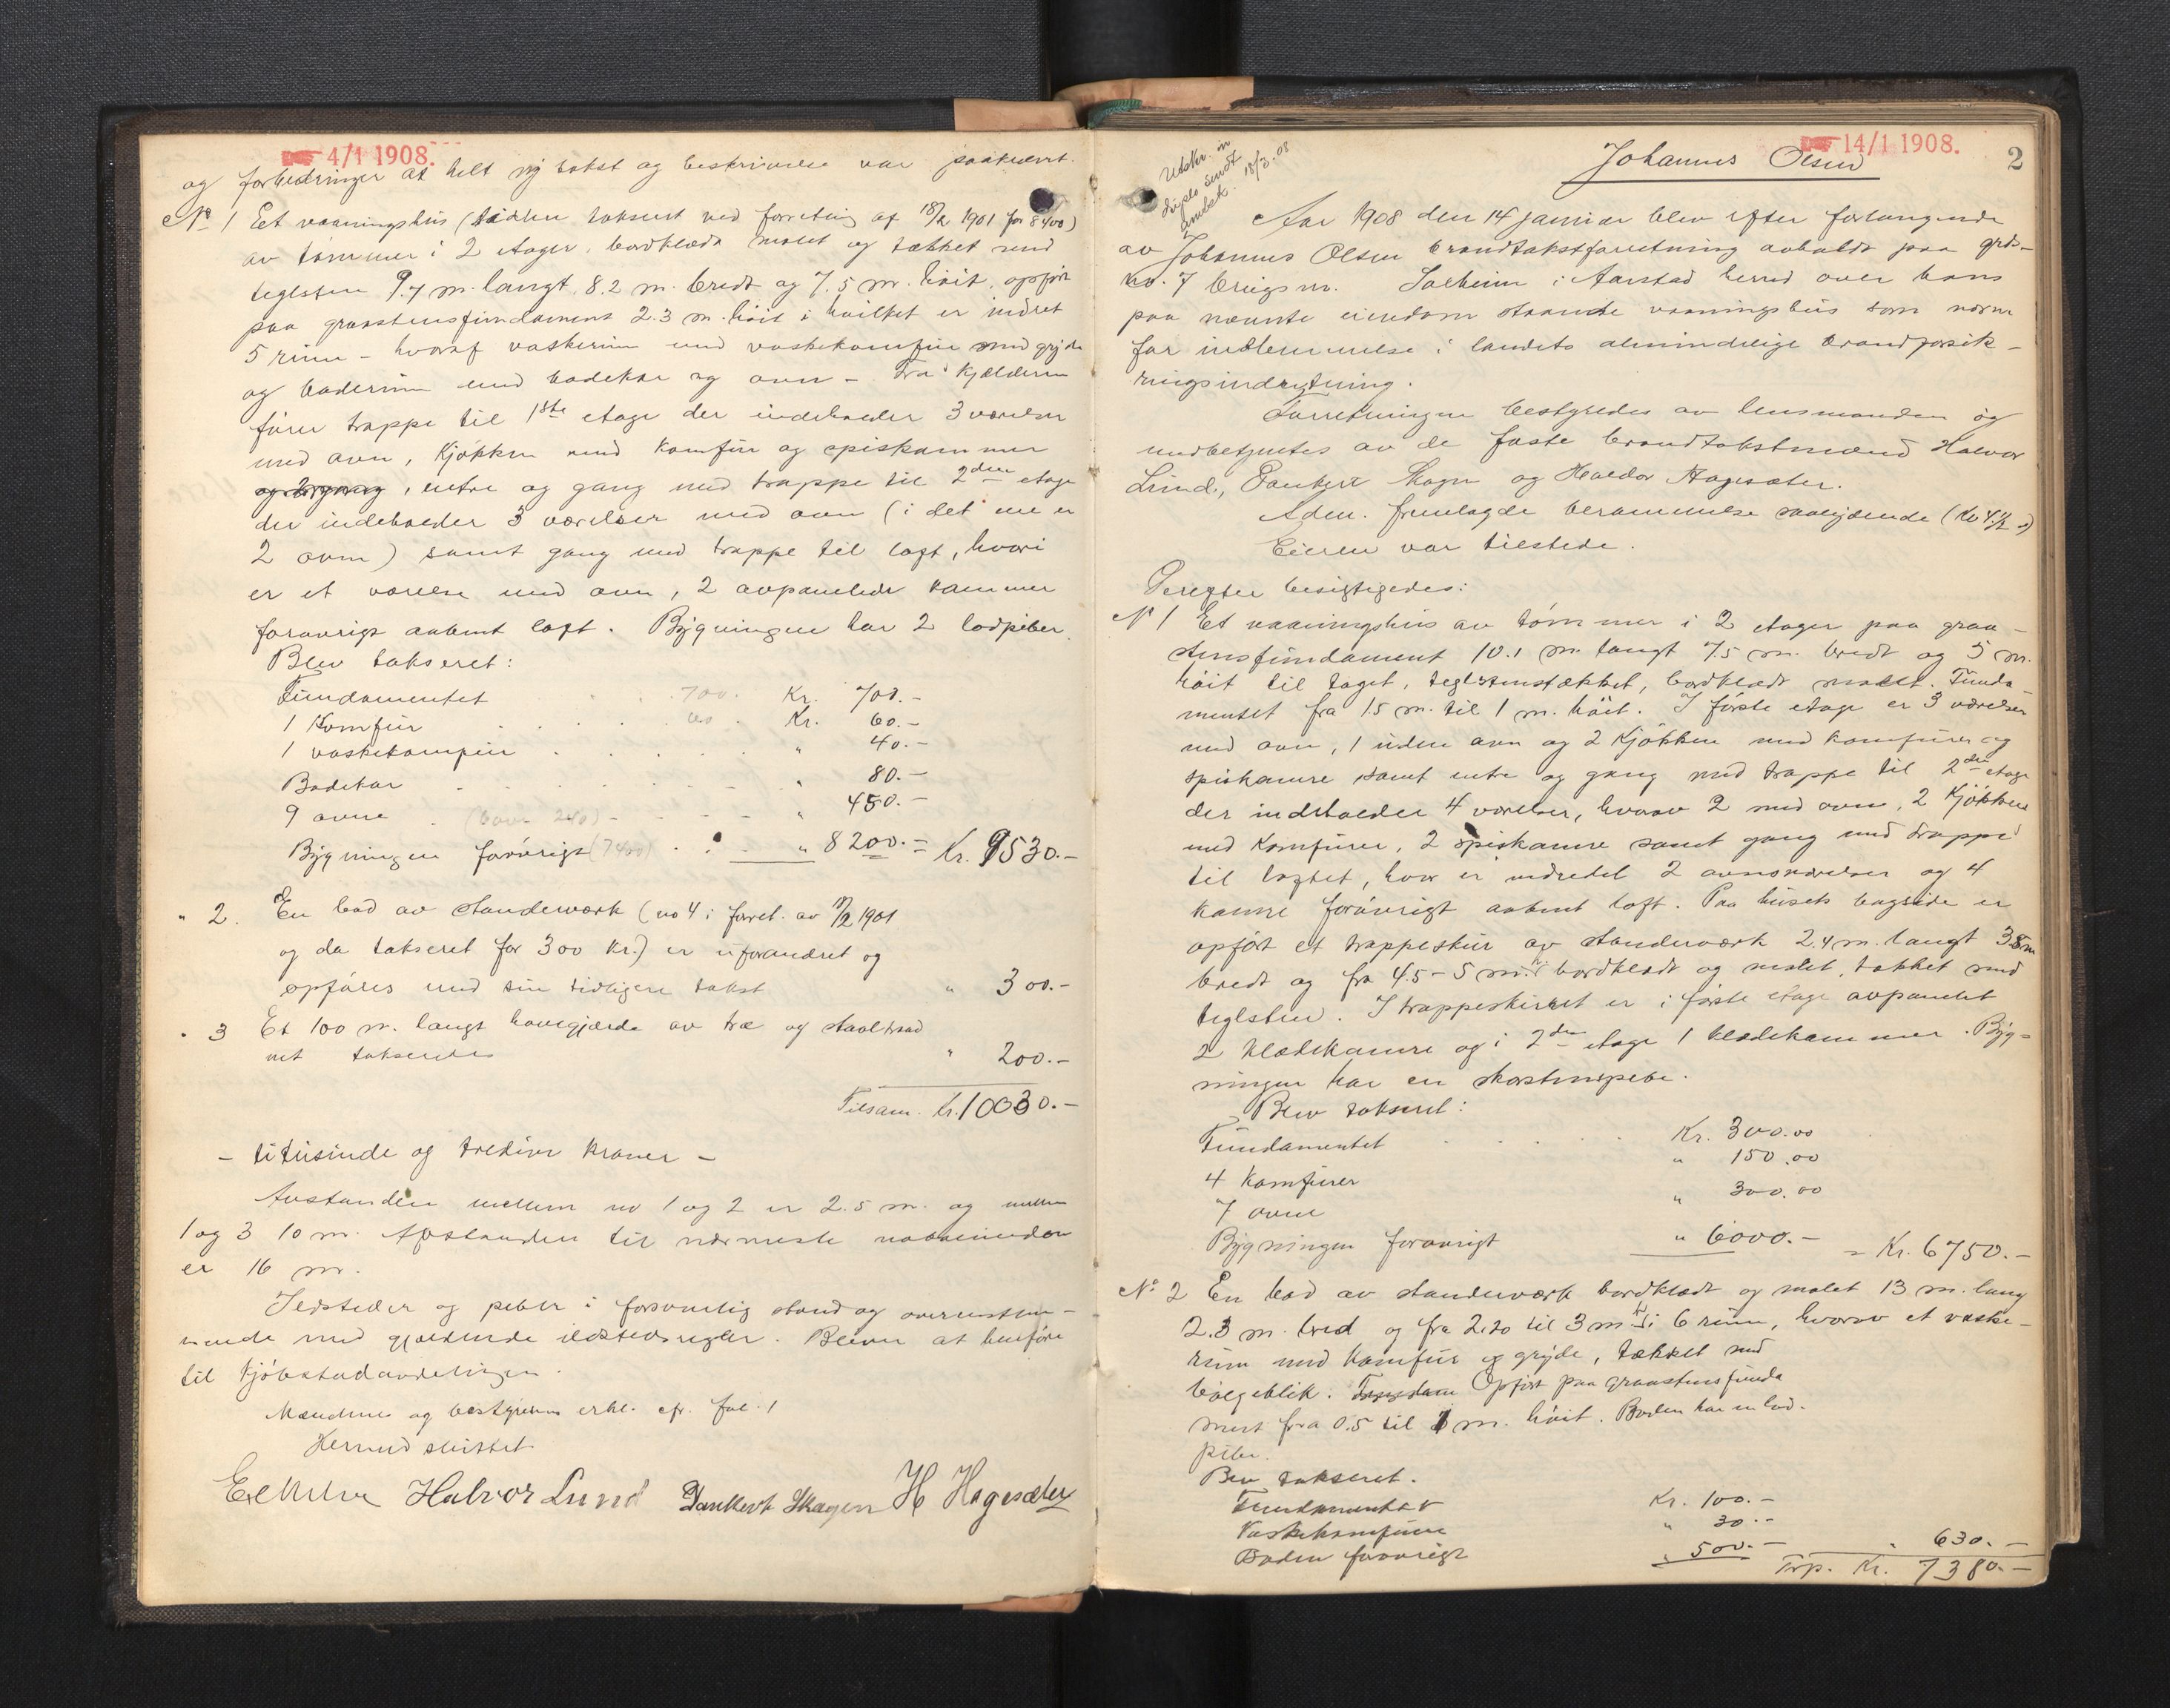 4/1 1908.
og forbedringer at helt ny takst og beskrivelse var paakrævet.
No 1 Et vaaningshus (sidem takseret ved forretning af 18/2 1901 for 8400)
av tømmer i 2 etager, bordklædt malet og tækket med
teglsten 9.7 m. langt, 8.2 m. bredt og 7.5 m. høit, opført
paa graastensfundament 2.3 m. høit i hvilket er indret
5 rum - hvoraf vaskerum med vaskekomfur med gryde
og baderum med badekar og ovn - Fra kjælderen
fører trappe til 1ste etage der indeholder 3 værelser
med ovn, kjøkken med komfur og spiskammer
og bryggang, entre og gang med trappe til 2den etage
der indeholder 3 værelser med ovn (i det ene er
2 ovne) samt gang med trappe til loft, hvori
er et værelse med ovn, 2 avpanelede kammer
forøvrigt aabent loft. Bygningen har 2 lodpiber.
Blev takseret:
Fundamentet 700. Kr. 700.-
1 Komfur 60 Kr. 60.-
1 vaskekomfur " 40.-
Badekar " 80.-
9 ovne " 450.-
Bygningen forøvrigt (7400) " 8200.- = Kr. 9530.-
" 2. En bod av standerværk (no 4 i forret. av 18/2 1901
og da takseret for 300 kr.) er uforandret og
opføres med sin tidligere takst " 300.-
" 3 Et 100 m. langt havegjærde av træ og staaltraad
net takseredes " 200.-
Tilsam. Kr. 10030.-
- titusinde og tredive kroner -
Avstanden mellem no 1 og 2 er 2.5 m. og mellem
1 og 3 10 m. Afstanden til nærmeste naboeiendom
er 16 m.
Ildsteder og piber i forsvarlig stand og overensstem-
mende med gjældende ildstedsregler. Bliver at henføre
til Kjøbstadavdelingen.
Mændene og bestyreren erkl. cfr. fol. 1
Hermed sluttet
Halvor Lund Dankert Skagen H Hagesæter
14/1 1908.
2
Johannes Olsen
Utskr. in
duplo sendt
amtsk. 18/3.08
Aar 1908 den 14 januar blev efter forlangende
av Johannes Olsen brandtakstforretning avholdt paa grds-
no. 7 brugsnr. Solheim i Aarstad herred over hans
paa nævnte eiendom staaende vaaningshus som varm
for indlemmelse i landets almindelige brandforsik-
ringsindretning.
Forretningen bestyredes av lensmanden og
medbetjentes av de faste brandtakstmænd Halvor
Lund, Dankert Skagen og Haldor Hagesæter.
Adm. fremlagde berammelse saalydende (Kv 4 1/2 s)
Eieren var tilstede.
Derefter besigtigedes:
No 1 Et vaaningshus av tømmer i 2 etager paa graa-
stensfundament 10.1 m. langt 7.5 m. bredt og 5 m.
høit til taget, teglstenstækket, bordklædt malet. Funda-
mentet fra 1.5 m. til 1 m. høit. I første etage er 3 værelser
med ovn, 1 uden ovn og 2 Kjøkken med komfurer og
spiskamre samt entre og gang med trappe til 2den etage
der indeholder 4 værelser, hvorav 2 med ovne, 2 Kjøkken
med Komfurer, 2 spiskamre samt gang med trappe
til loftet, hvor er indredet 2 ovnsværelser og 4
kamre forøvrigt aabent loft. Paa husets bagside er
opført et trappeskur av standerværk 2.4 m. langt 3.8 m
bredt og fra 4.5 - 5 m. h. bordklædt og malet, tækket med
teglsten. I trappeskuret er i første etage avpanelet
2 klædekamre og i 2den etage 1 klædekammer. Byg-
ningen har en skorstenspibe.
Blev takseret:
Fundamentet Kr. 300.00
4 Komfurer " 150.00
7 ovne " 300.00
Bygningen forøvrigt " 6000.- = Kr. 6750.-
No 2 En bod av standerværk bordklædt og malet 13 m. lang
2.3 m. bred og fra 2.20 til 3 m. h. i 6 rum, hvorav et vaske-
rum med Komfur og gryde, tækket med
bølgeblik. Opført paa graastensfunda
ment fra 0.5 til 1 m. høit. Boden har en lod-
pibe.
Blev takseret.
Fundamentet Kr. 100.-
Vaskekomfuren " 30.-
Boden forøvrigt " 500.- " 630.-
Trp. Kr. 7380.-